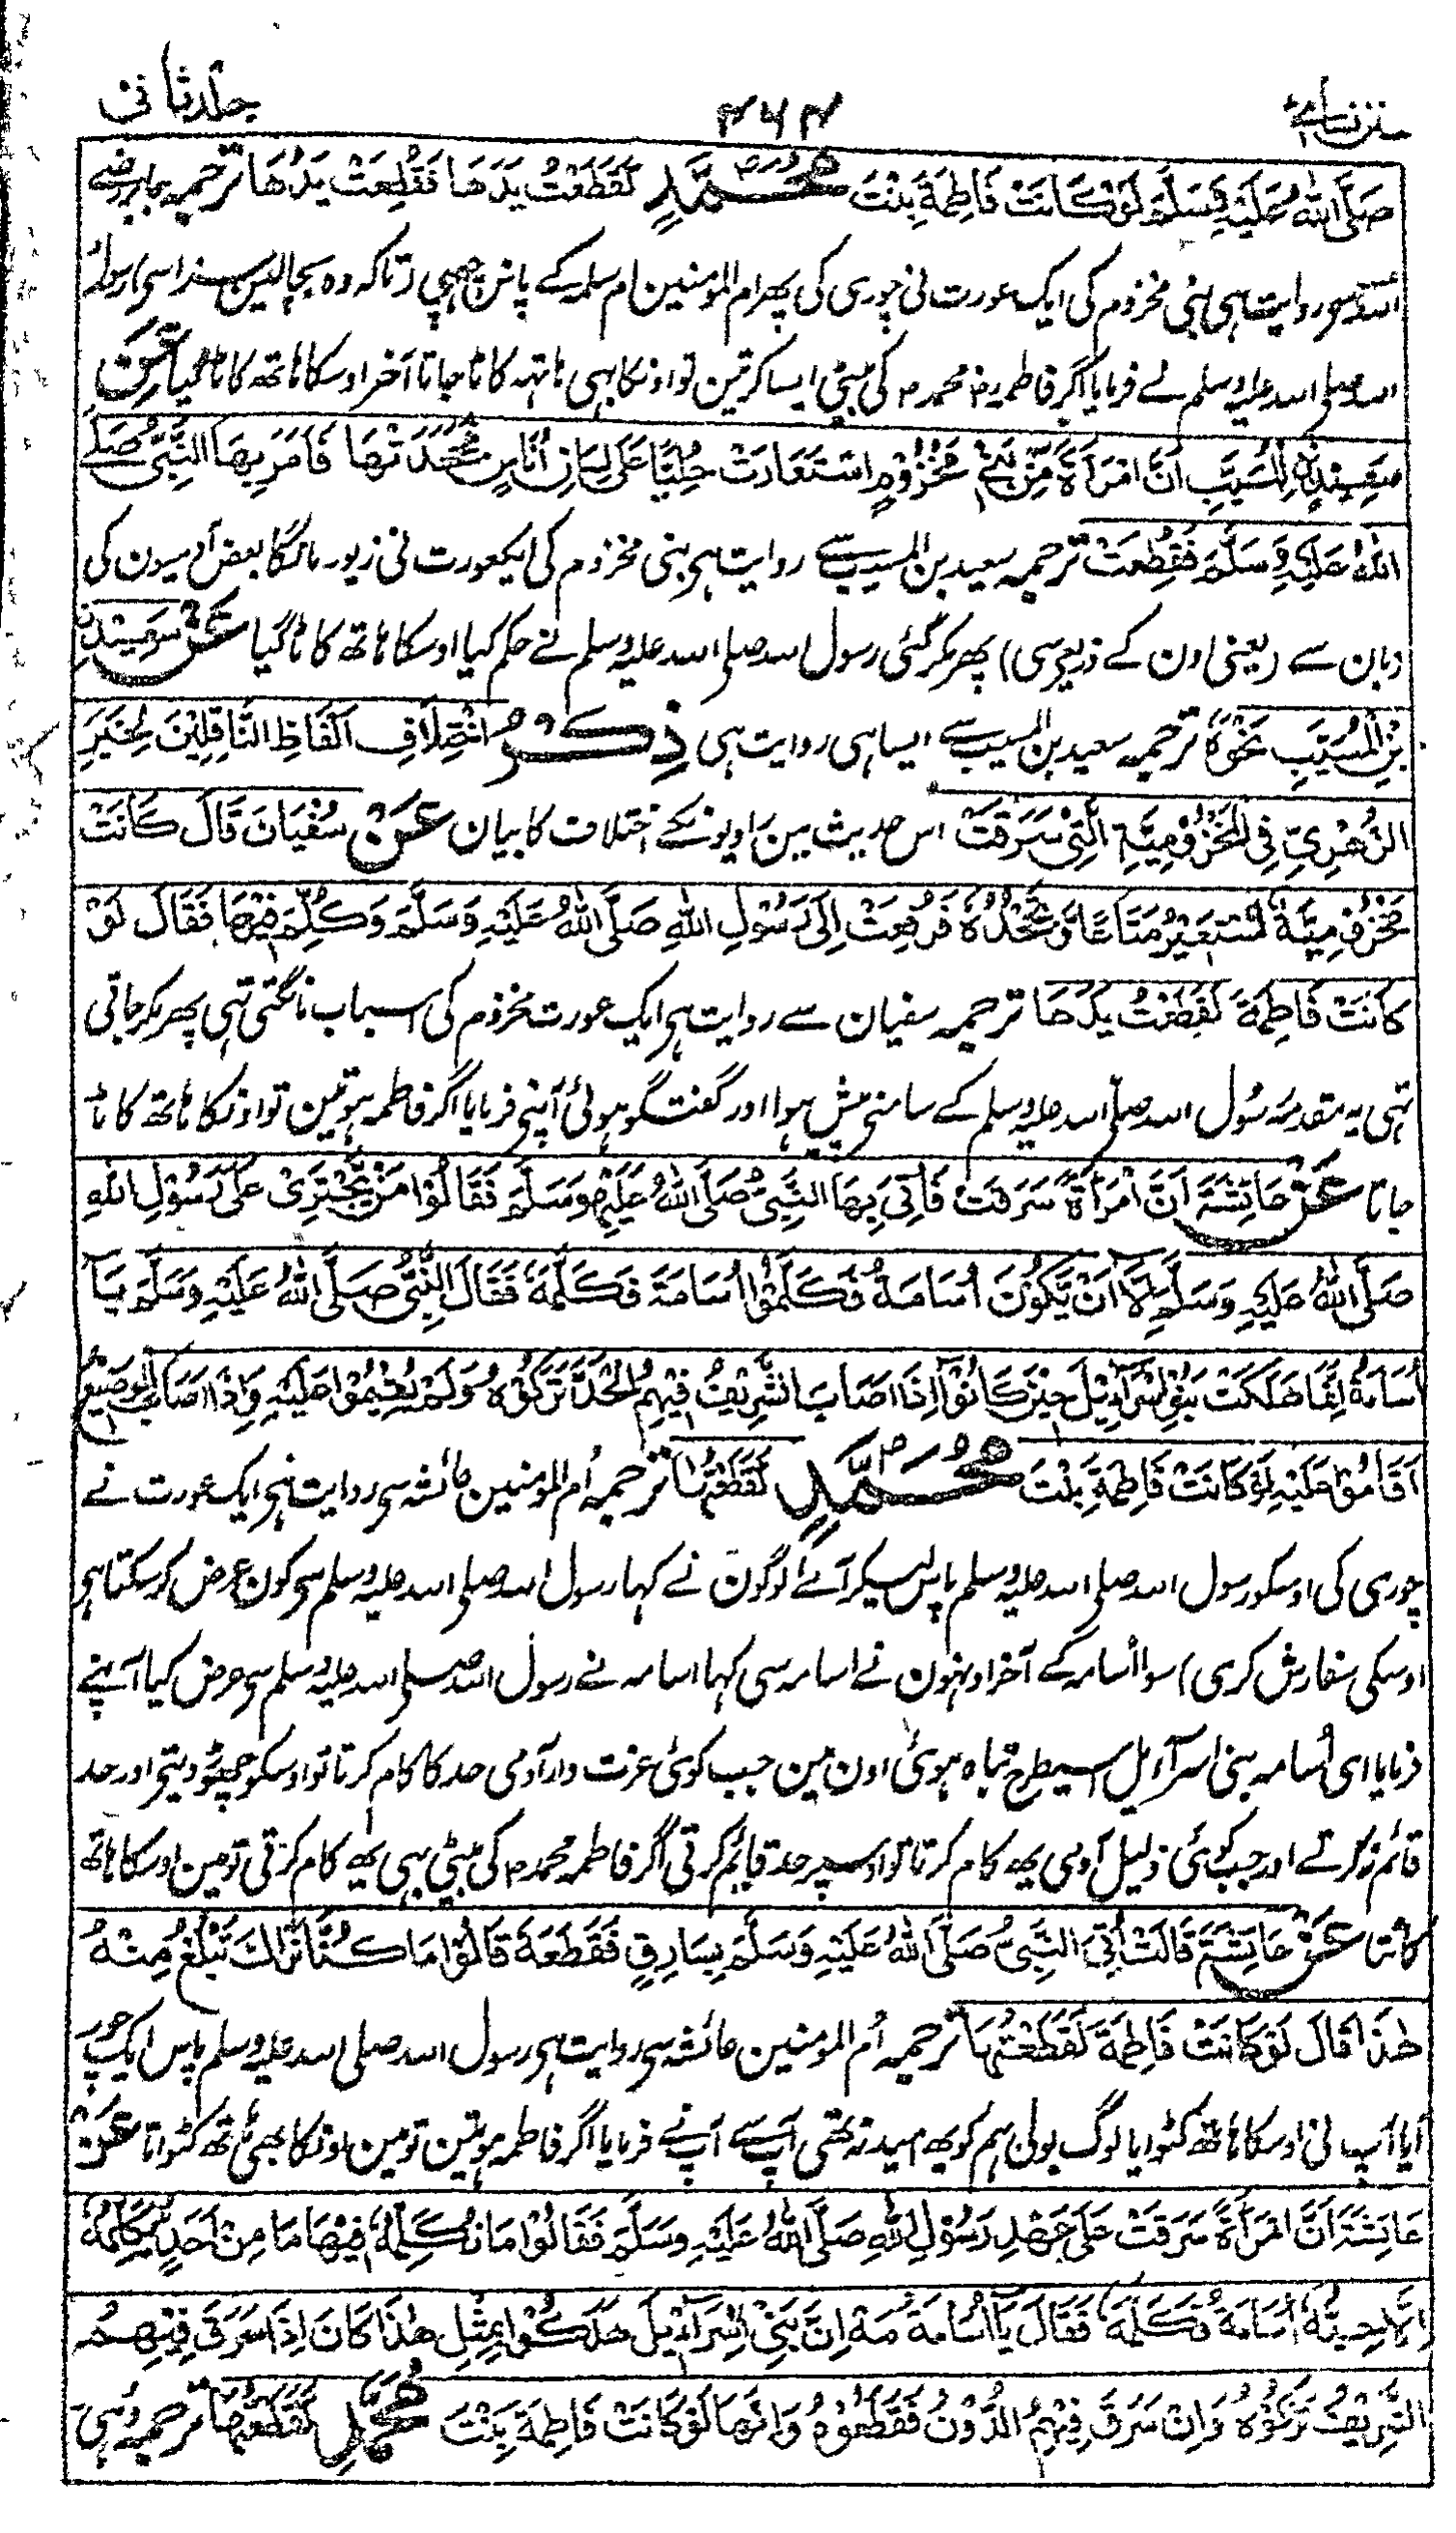 سنن نسائی ۴۶۴ جلد ثانی
صَلَّى اللهُ عَلَيْهِ وَسَلَّمَ لَوْ كَانَتْ فَاطِمَةُ بِنْتَ مُحَمَّدٍ لَقَطَعْتُ يَدَهَا فَقُطِعَتْ يَدُهَا ترجمہ جابر رضے
اللہ سے روایت ہی بنی مخزوم کی ایک عورت نی چوری کی پھر ام المومنین ام سلمہ کے پاس چھپی (تاکہ وہ بچا لین سزا سی) رسول
اللہ صلی اللہ علیہ وسلم نے فرمایا اگر فاطمہ رضہ محمد ص کی بیٹی ایسا کرتین تو اونکا بہی ہاتہہ کاٹا جاتا آخر اوسکا ہاتھ کاٹا گیا عَنْ
سَعِيْدِ بْنِ الْمُسَيَّبِ اَنَّ امْرَاَةً مِّنْ بَنِيْ مَخْزُوْمٍ اسْتَعَارَتْ حُلِيًّا عَلٰى لِسَانِ اُنَاسٍ فَجَحَدَتْهَا فَاَمَرَ بِهَا النَّبِيُّ صَلَّى
اللهُ عَلَيْهِ وَسَلَّمَ فَقُطِعَتْ ترجمہ سعید بن المسیب سے روایت ہی بنی مخزوم کی ایکعورت نی زیور مانگا بعض آدمیون کی
زبان سے (یعنی اون کے ذریعہ سی) پھر مکر گئی رسول اللہ صلی اللہ علیہ وسلم نے حکم کیا اوسکا ہاتھ کاٹا گیا عَنْ سَعِيْدِ
بْنِ الْمُسَيَّبِ نَحْوَهٗ ترجمہ سعید بن المسیب سے ایسا ہی روایت ہی ذِكْرُ اخْتِلَافِ اَلْفَاظِ النَّاقِلِيْنَ لِخَبَرِ
الزُّهْرِيِّ فِي الْمَخْزُوْمِيَّةِ الَّتِيْ سَرَقَتْ اس حدیث مین راویونکے اختلاف کا بیان عَنْ سُفْيَانَ قَالَ كَانَتْ
مَخْزُوْمِيَّةٌ تَسْتَعِيْرُ مَتَاعًا وَتَجْحَدُهٗ فَرُفِعَتْ اِلٰى رَسُوْلِ اللهِ صَلَّى اللهُ عَلَيْهِ وَسَلَّمَ وَكُلِّمَ فِيْهَا فَقَالَ لَوْ
كَانَتْ فَاطِمَةَ لَقَطَعْتُ يَدَهَا ترجمہ سفیان سے روایت ہی ایک عورت مخزوم کی اسباب مانگتی تہی پھر مکر جاتی
تہی یہ مقدمہ رسول اللہ صلی اللہ علیہ وسلم کے سامنے پیش ہوا اور گفتگو ہوئی آپنی فرمایا اگر فاطمہ ہوتین تو اونکا ہاتھ کاٹا
جاتا عَنْ عَائِشَةَ اَنَّ امْرَاَةً سَرَقَتْ فَاُتِيَ بِهَا النَّبِيُّ صَلَّى اللهُ عَلَيْهِ وَسَلَّمَ فَقَالُوْا مَنْ يَّجْتَرِئُ عَلٰى رَسُوْلِ اللهِ
صَلَّى اللهُ عَلَيْهِ وَسَلَّمَ اِلَّا اَنْ يَّكُوْنَ اُسَامَةُ فَكَلَّمُوْا اُسَامَةَ فَكَلَّمَهٗ فَقَالَ النَّبِيُّ صَلَّى اللهُ عَلَيْهِ وَسَلَّمَ يَا
اُسَامَةُ اِنَّمَا هَلَكَتْ بَنُوْ اِسْرَآئِيْلَ حِيْنَ كَانُوْا اِذَا اَصَابَ الشَّرِيْفُ فِيْهِمُ الْحَدَّ تَرَكُوْهُ وَلَمْ يُقِيْمُوْا عَلَيْهِ وَاِذَا اَصَابَ الْوَضِيْعُ
اَقَامُوْا عَلَيْهِ لَوْ كَانَتْ فَاطِمَةَ بِنْتَ مُحَمَّدٍ لَقَطَعْتُهَا ترجمہ اُم المومنین عائشہ سی روایت ہی ایک عورت نے
چوری کی اوسکو رسول اللہ صلی اللہ علیہ وسلم پاس لیکر آئے لوگون نے کہا رسول اللہ صلی اللہ علیہ وسلم سی کون عرض کرسکتا ہی
(اوسکی سفارش کری) سوا اُسامہ کے آخر اونہون نے اسامہ سی کہا اسامہ نے رسول اللہ صلی اللہ علیہ وسلم سی عرض کیا آپنے
فرمایا ای اُسامہ بنی اسرائیل اسیطرح تباہ ہوئی اون مین جب کوئی عزت دار آدمی حد کا کام کرتا تو اوسکو چھوڑ دیتی اور حد
قائم نہ کرتے اور جب کوئی ذلیل آدمی یہ کام کرتا تو اوسپر حد قایم کرتی اگر فاطمہ محمد ص کی بیٹی بہی یہ کام کرتی تو مین اوسکا ہاتھ
کاٹتا عَنْ عَائِشَةَ قَالَتْ اُتِيَ النَّبِيُّ صَلَّى اللهُ عَلَيْهِ وَسَلَّمَ بِسَارِقٍ فَقَطَعَهٗ قَالُوْا مَا كُنَّا نُرَاكَ تَبْلُغُ مِنْهُ
هٰذَا قَالَ لَوْ كَانَتْ فَاطِمَةَ لَقَطَعْتُهَا ترجمہ اُم المومنین عائشہ سی روایت ہی رسول اللہ صلی اللہ علیہ وسلم پاس ایک چور
آیا آپ نی اوسکا ہاتھ کٹوایا لوگ بولی ہم کو یہ امید نہ تھی آپ سے آپ نے فرمایا اگر فاطمہ ہوتین تو مین اونکا بھی ہاتھ کٹواتا عَنْ
عَائِشَةَ اَنَّ امْرَاَةً سَرَقَتْ عَلٰى عَهْدِ رَسُوْلِ اللهِ صَلَّى اللهُ عَلَيْهِ وَسَلَّمَ فَقَالُوْا مَا نُكَلِّمُهٗ فِيْهَا مَا مِنْ اَحَدٍ يُّكَلِّمُهٗ
اِلَّا حِبُّهٗ اُسَامَةُ فَكَلَّمَهٗ فَقَالَ يَا اُسَامَةُ مَهْ اِنَّ بَنِيْ اِسْرَآئِيْلَ هَلَكُوْا بِمِثْلِ هٰذَا كَانَ اِذَا سَرَقَ فِيْهِمُ
الشَّرِيْفُ تَرَكُوْهُ وَاِنْ سَرَقَ فِيْهِمُ الدُّوْنُ قَطَعُوْهُ وَاِنَّهَا لَوْ كَانَتْ فَاطِمَةَ بِنْتَ مُحَمَّدٍ لَقَطَعْتُهَا ترجمہ وہی